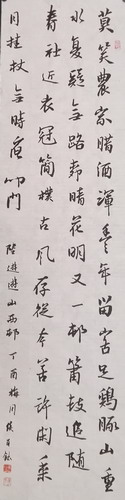 莫笑農家腊酒渾豐年留客足鷄豚山重
水复疑无路柳暗花明又一邨簫鼓追隨
春社近衣冠簡樸古風存從今若許閑乘
月拄杖无時夜叩門
陸遊遊山西邨 丁酉梅月